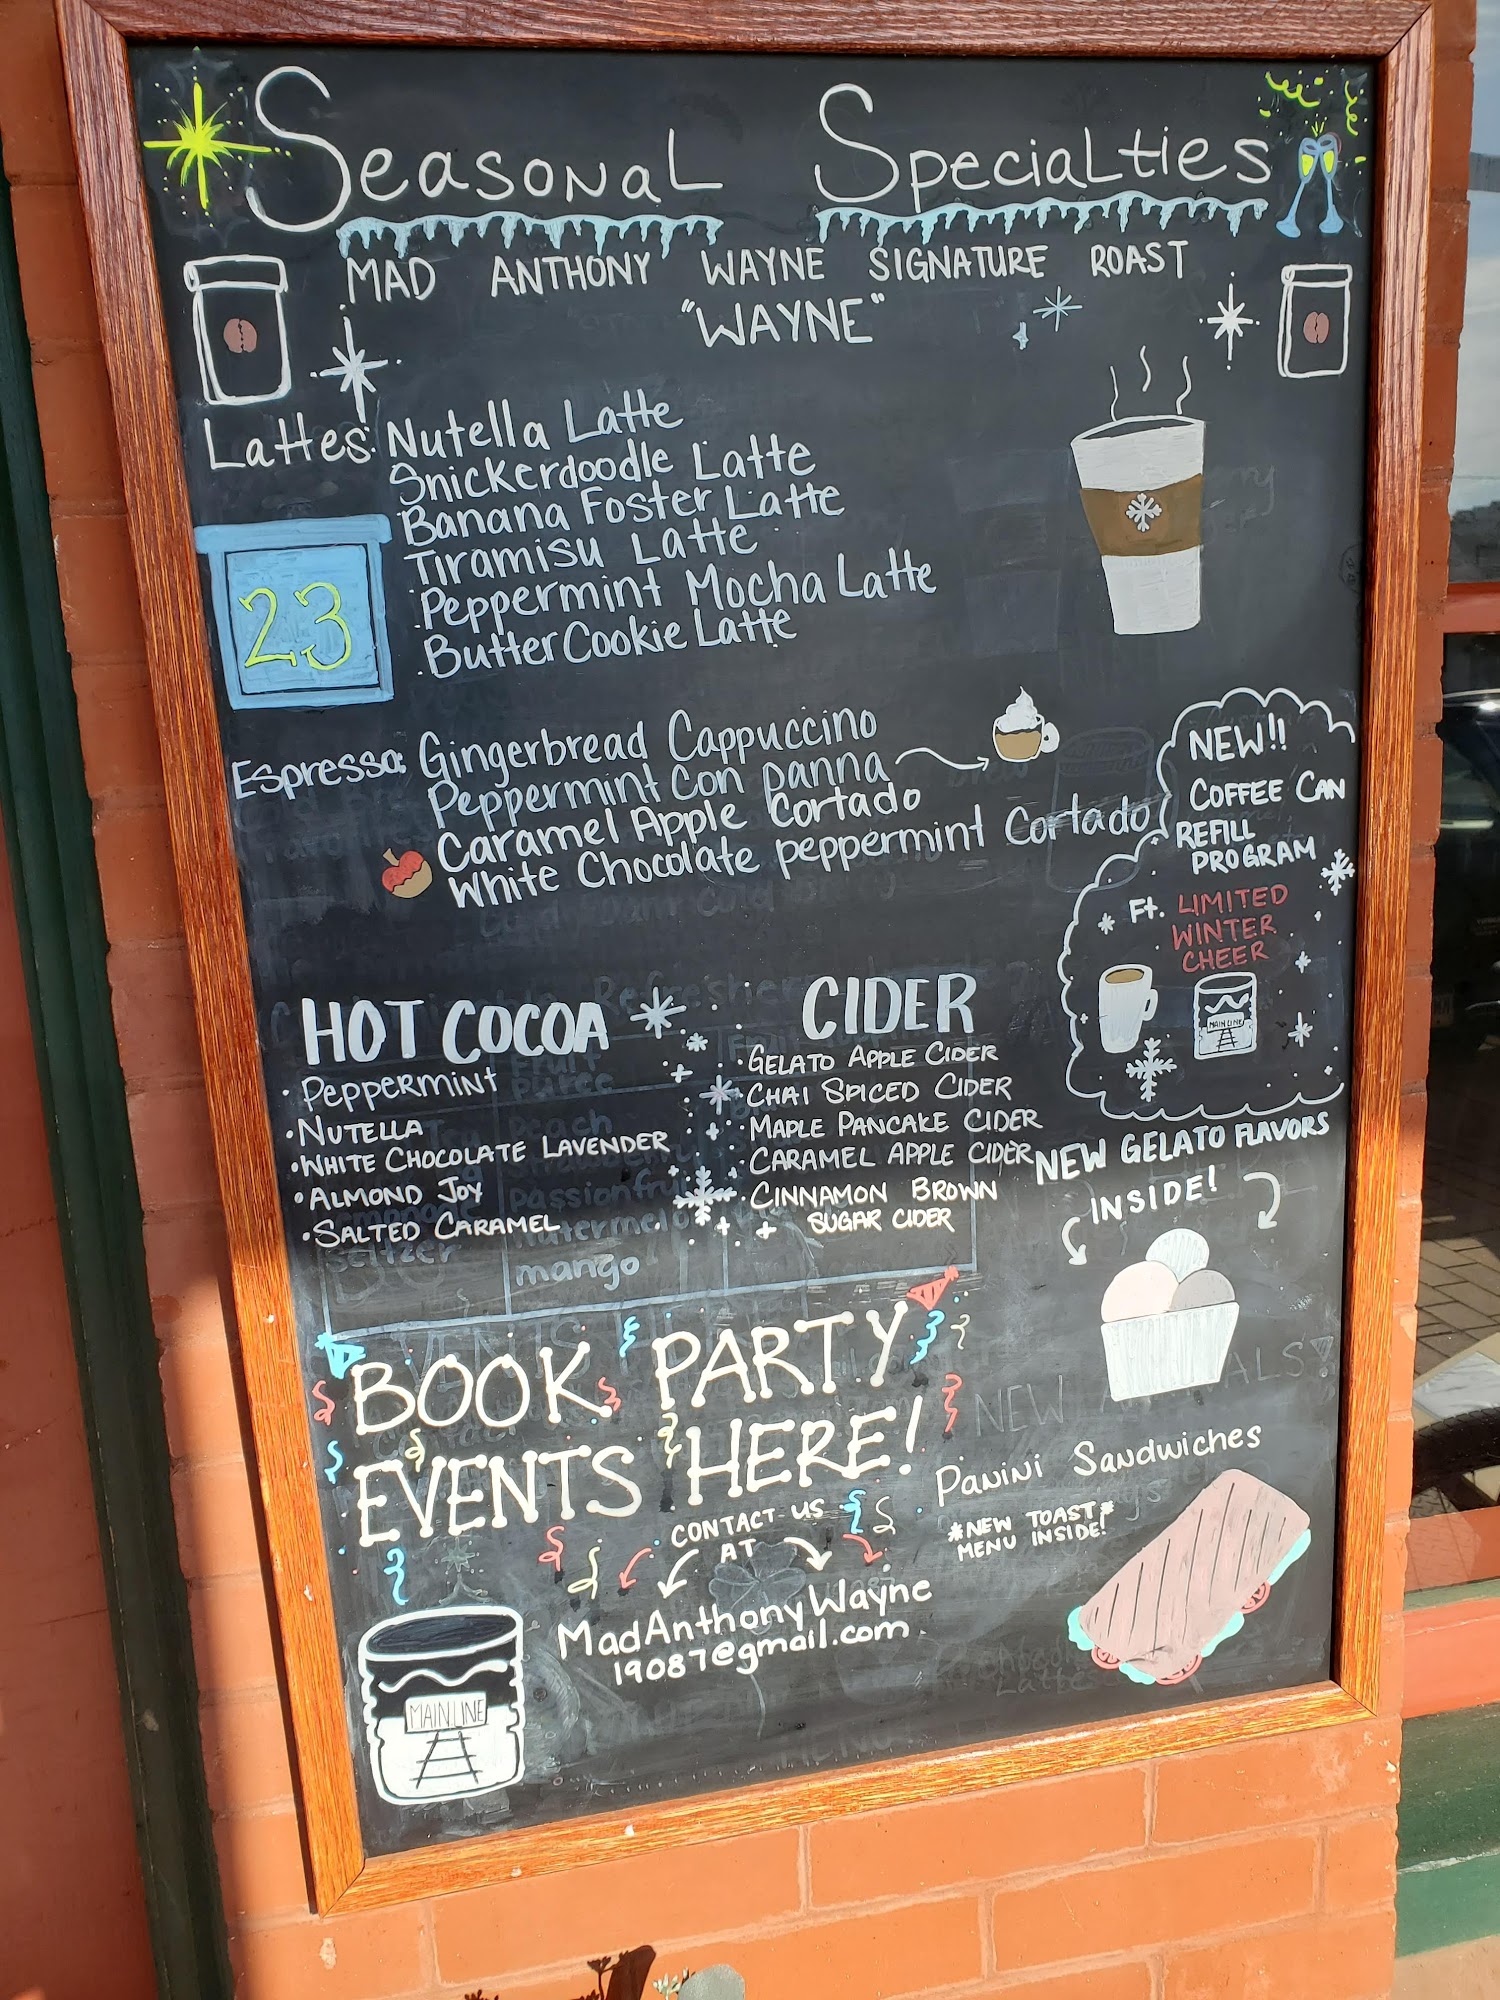 Seasonal Specialties
MAD ANTHONY WAYNE SIGNATURE ROAST
"WAYNE"
Lattes: Nutella Latte
Snickerdoodle Latte
Banana Foster Latte
Tiramisu Latte
Peppermint Mocha Latte
Butter Cookie Latte
23
Espresso: Gingerbread Cappuccino
Peppermint Con panna
Caramel Apple Cortado
White Chocolate peppermint Cortado
NEW!!
COFFEE CAN
REFILL
PROGRAM
Ft. LIMITED
WINTER
CHEER
MAINLINE
HOT COCOA
• PEPPERMINT
• NUTELLA
• WHITE CHOCOLATE LAVENDER
• ALMOND JOY
• SALTED CARAMEL
CIDER
• GELATO APPLE CIDER
• CHAI SPICED CIDER
• MAPLE PANCAKE CIDER
• CARAMEL APPLE CIDER
• CINNAMON BROWN
SUGAR CIDER
NEW GELATO FLAVORS
INSIDE!
mango
BOOK PARTY
EVENTS HERE!
CONTACT US
AT
MadAnthonyWayne
19087@gmail.com
MAINLINE
NEW ARRIVALS!
PANINI SANDWICHES
*NEW TOAST*
MENU INSIDE!